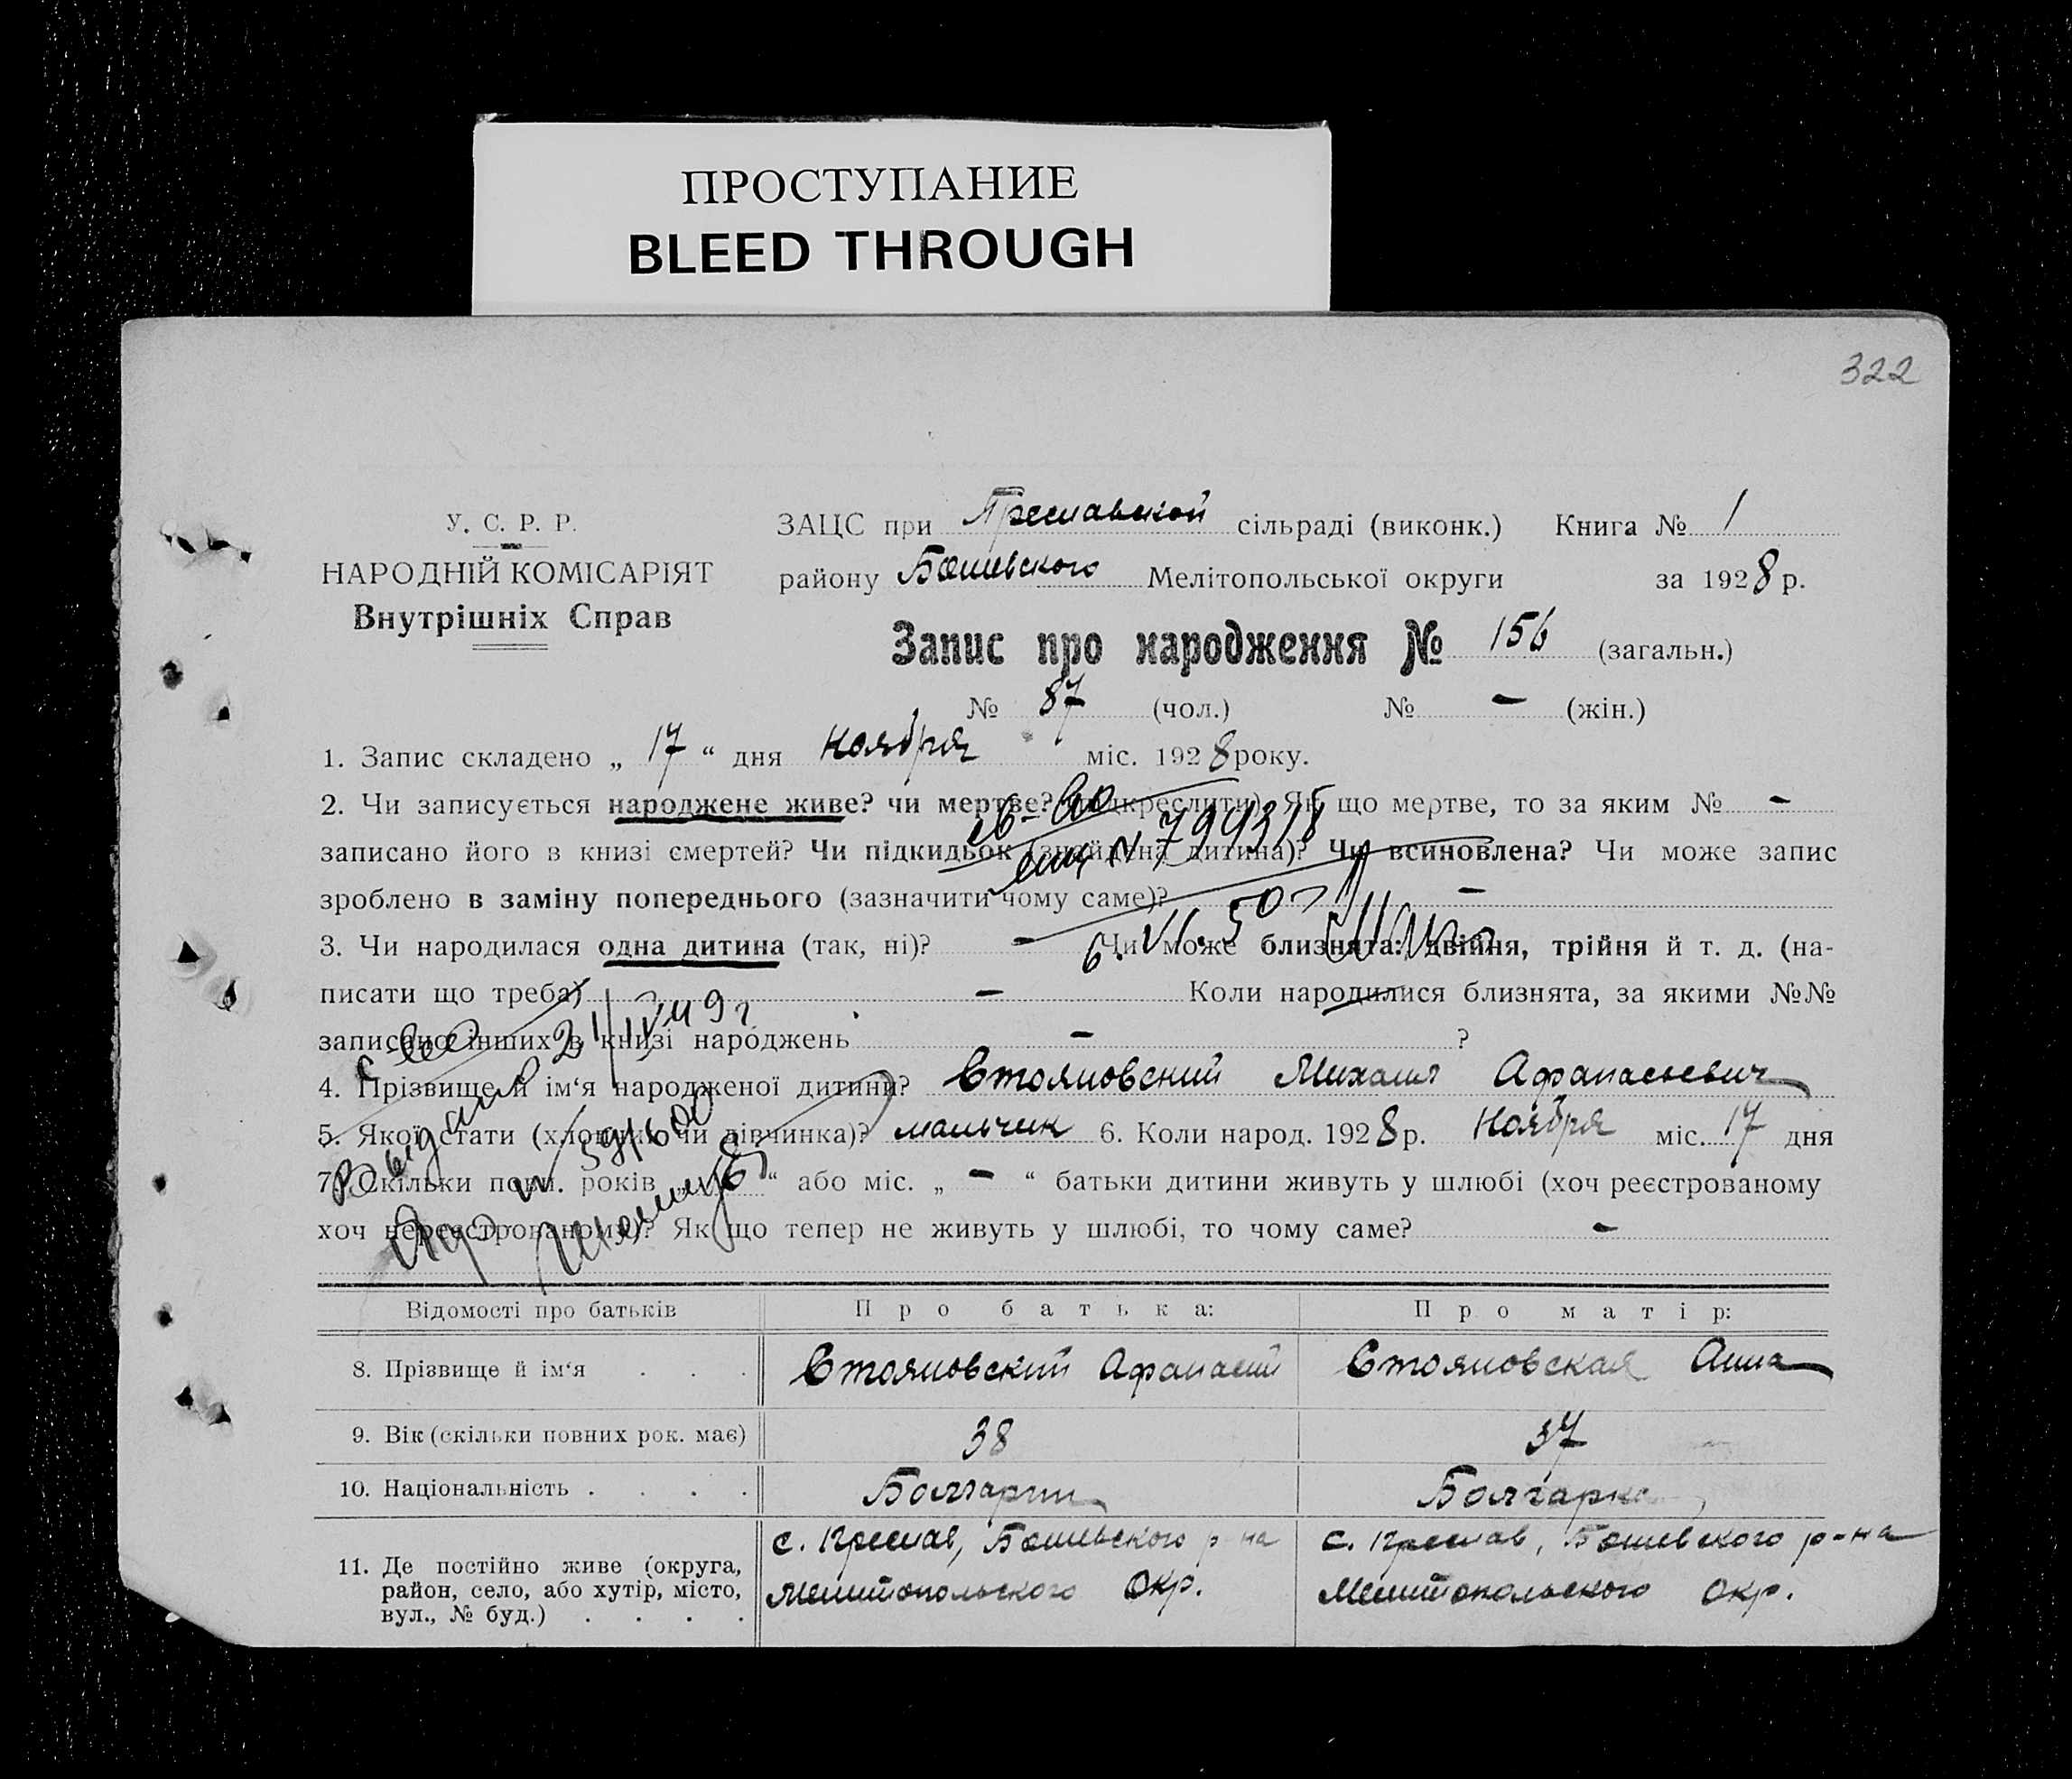 ПРОСТУПАНИЕ
BLEED THROUGH
322
У. С. Р. Р.
НАРОДНІЙ КОМІСАРІЯТ
Внутрішніх Справ
ЗАЦС при Преславской сільраді (виконк.) Книга № 1
району Мелітопольської округи за 1928 р.
Запис про народження № 156 (загальн.)
№ 87 (чол.) № - (жін.)
1. Запис складено „ 17 “ дня Ноября міс. 1928 року.
2. Чи записується народжене живе? чи мертве? (підкреслити) Як що мертве, то за яким № -
записано його в книзі смертей? Чи підкидьок (знайдена дитина)? Чи всиновлена? Чи може запис
зроблено в заміну попереднього (зазначити чому саме)? -
3. Чи народилася одна дитина (так, ні)? - Чи може близнята: двійня, трійня й т. д. (на-
писати що треба) - Коли народилися близнята, за якими №№
записано інших в книзі народжень - ?
4. Прізвище й ім‘я народженої дитини? Стояновский Михаил Афанасьевич
5. Якої стати (хлопчик чи дівчинка)? мальчик 6. Коли народ. 1928 р. Ноября міс. 17 дня
7. Скільки повн. років „ “ або міс. „ - “ батьки дитини живуть у шлюбі (хоч реєстрованому
хоч нереєстрованому)? Як що тепер не живуть у шлюбі, то чому саме? -
Відомості про батьків Про батька: Про матір:
8. Прізвище й ім‘я . . . Стояновский Афанасий Стояновская Анна
9. Вік (скільки повних рок. має) 38 37
10. Національність . . . . Болгарин Болгарка
11. Де постійно живе (округа, район, село, або хутір, місто, вул., № буд.) . . . .
с. Преслав, р-на
Мелитопольского Окр.
с. Преслав, р-на
Мелитопольского Окр.